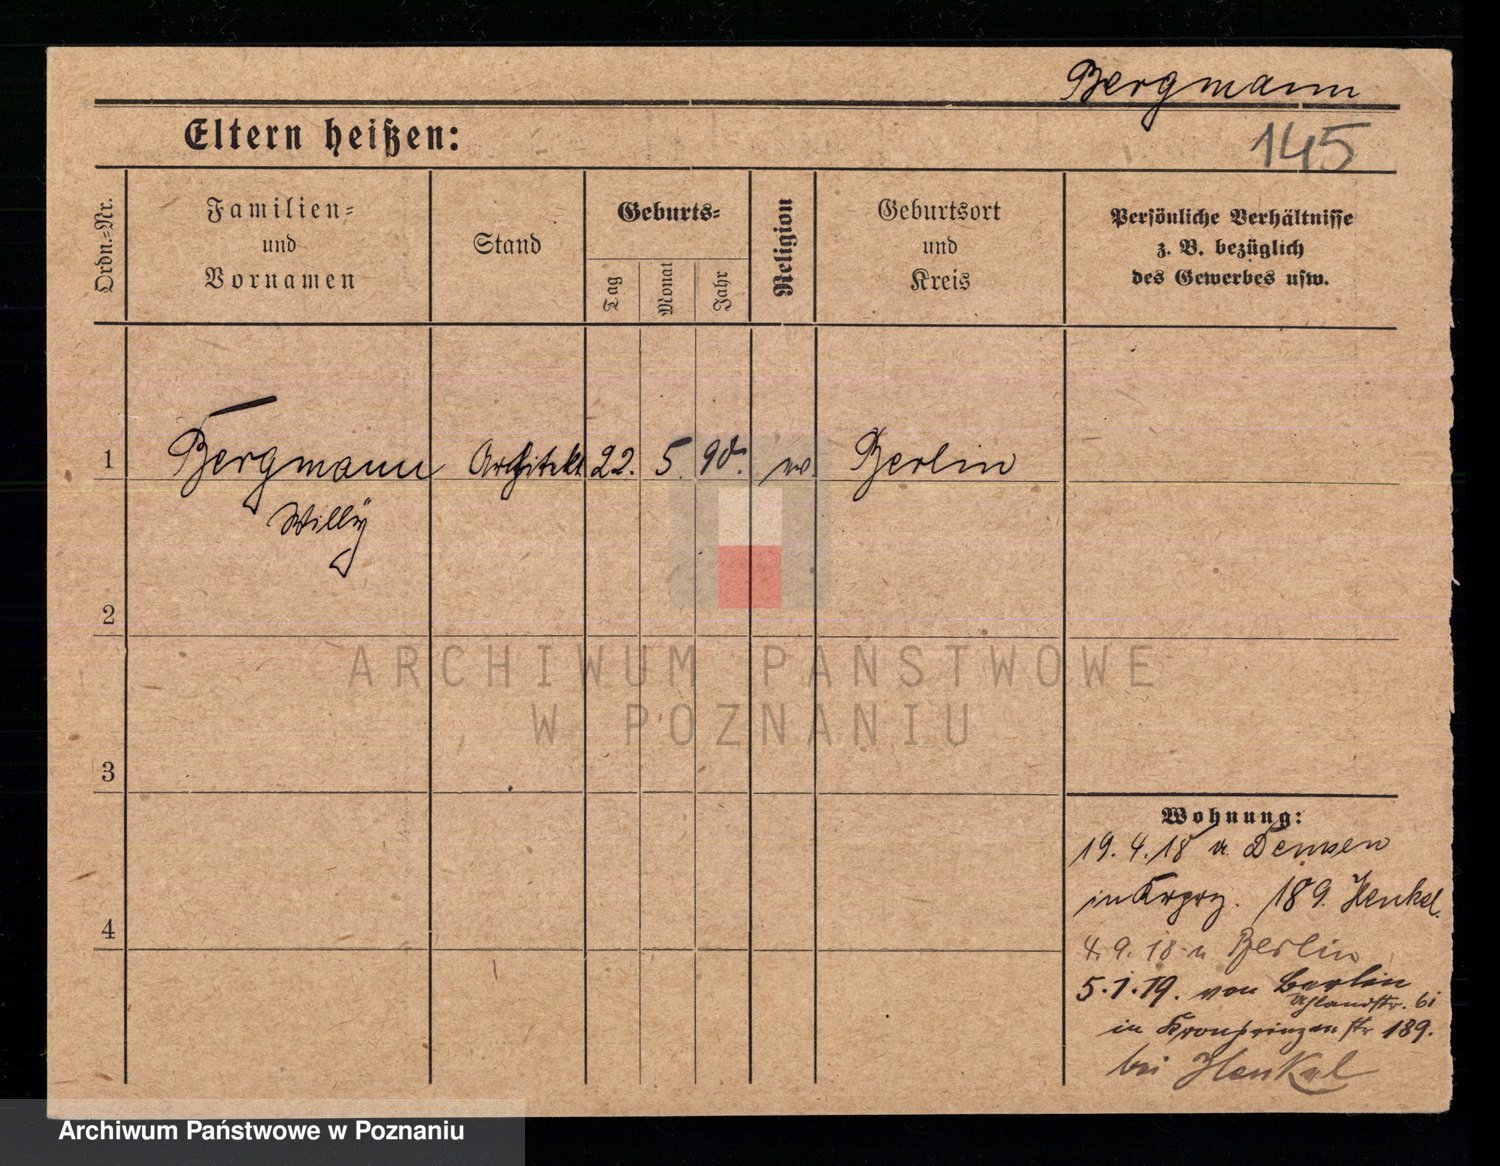 Bergmann
Eltern heißen:
145
Ordn.-Nr.
Familien-
und
Vornamen
Stand
Geburts-
Tag
Monat
Jahr
Religion
Geburtsort
und
Kreis
Persönliche Verhältnisse
z. B. bezüglich
des Gewerbes usw.
1
Bergmann Architekt 22. 5. 90. Berlin
Willy
2
ARCHIWUM PAŃSTWOWE
W POZNANIU
3
Wohnung:
19.4.18 v.
in Krprz. 189. Henkel.
4
4.9.18 n Berlin
5.1.19. von Berlin
Uhlandstr.
in Kronprinzenstr 189.
bei Henkel
Archiwum Państwowe w Poznaniu